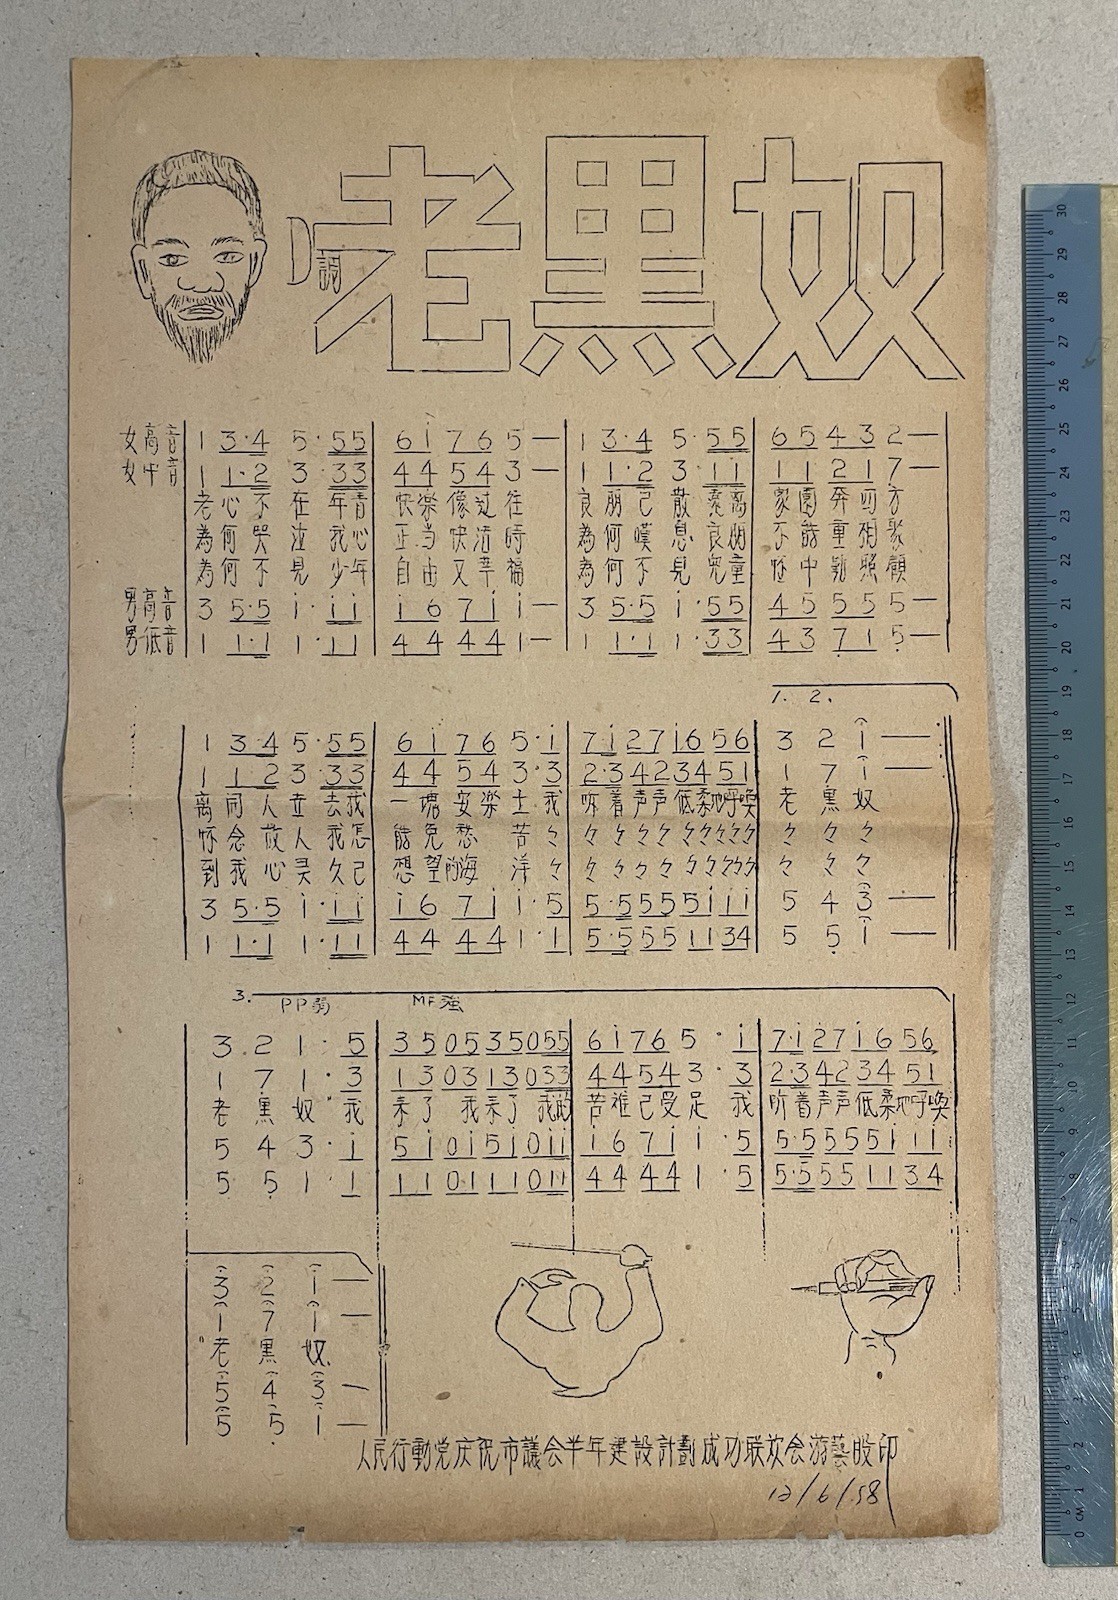 D調 老黑奴
女高音 1 3·4 5·55 | 6 i 7 6 5 — | 1 3·4 5·55 | 6 5 4 3 2 — |
女中音 1 1·2 3·33 | 4 4 5 4 3 — | 1 1·2 3·11 | 1 1 2 1 7 — |
老心不在年青 快樂像过往 良朋己散离 家園奔四方
為何哭泣我心 正当快活時 為何嘆息良朋 不能重相聚
為何不見少年 自由又幸福 為何不見兒童 怀中點照顧
男高音 3 5·5 i·ii | i 6 7 i i — | 3 5·5 i·55 | 4 5 5 5 5 — |
男低音 1 1·1 1·11 | 4 4 4 4 1 — | 1 1·1 1·33 | 4 3 7 1 5 — |
1. 2.
1 3·4 5·55 | 6 i 7 6 5·i | 7·i 2 7 i 6 5 6 | 3 2 i — |
1 1·2 3·33 | 4 4 5 4 3·3 | 2·3 4 2 3 4 5 1 | 1 7 i — |
离同人並去我 一塊安樂土 我 听着声声低柔地呼喚 老黑奴
怀念故人我怎 能免愁苦 々 々々々々々々々々々 々々々
到我心灵久己 想望的海洋 々 々々々々々々々々々 々々々
3 5·5 i·ii | i 6 7 i i·5 | 5·5 5 5 5 i i i | 5 4 3 — |
1 1·1 1·11 | 4 4 4 4 1·1 | 5·5 5 5 1 1 3 4 | 5 5 i — |
3. PP弱 MF强
3 2 1·5 | 3 5 0 5 3 5 0 5 5 | 6 i 7 6 5·i | 7·i 2 7 i 6 5 6
1 7 1·3 | 1 3 0 3 1 3 0 3 3 | 4 4 5 4 3·3 | 2·3 4 2 3 4 5 1
老黑奴 我 来了 我来了 我的 苦难己受足 我 听着声声低柔地呼喚
5 4 3·i | 5 i 0 i 5 i 0 i i | i 6 7 i i·5 | 5·5 5 5 5 i i i
5 5 1·1 | 1 1 0 1 1 1 0 1 1 | 4 4 4 4 1·5 | 5·5 5 5 1 1 3 4
3 2 i —
1 7 i —
老黑奴
5 4 3 —
5 5 i —
人民行動党庆祝市議会半年建設計劃成功联欢会游藝股印
12/6/58